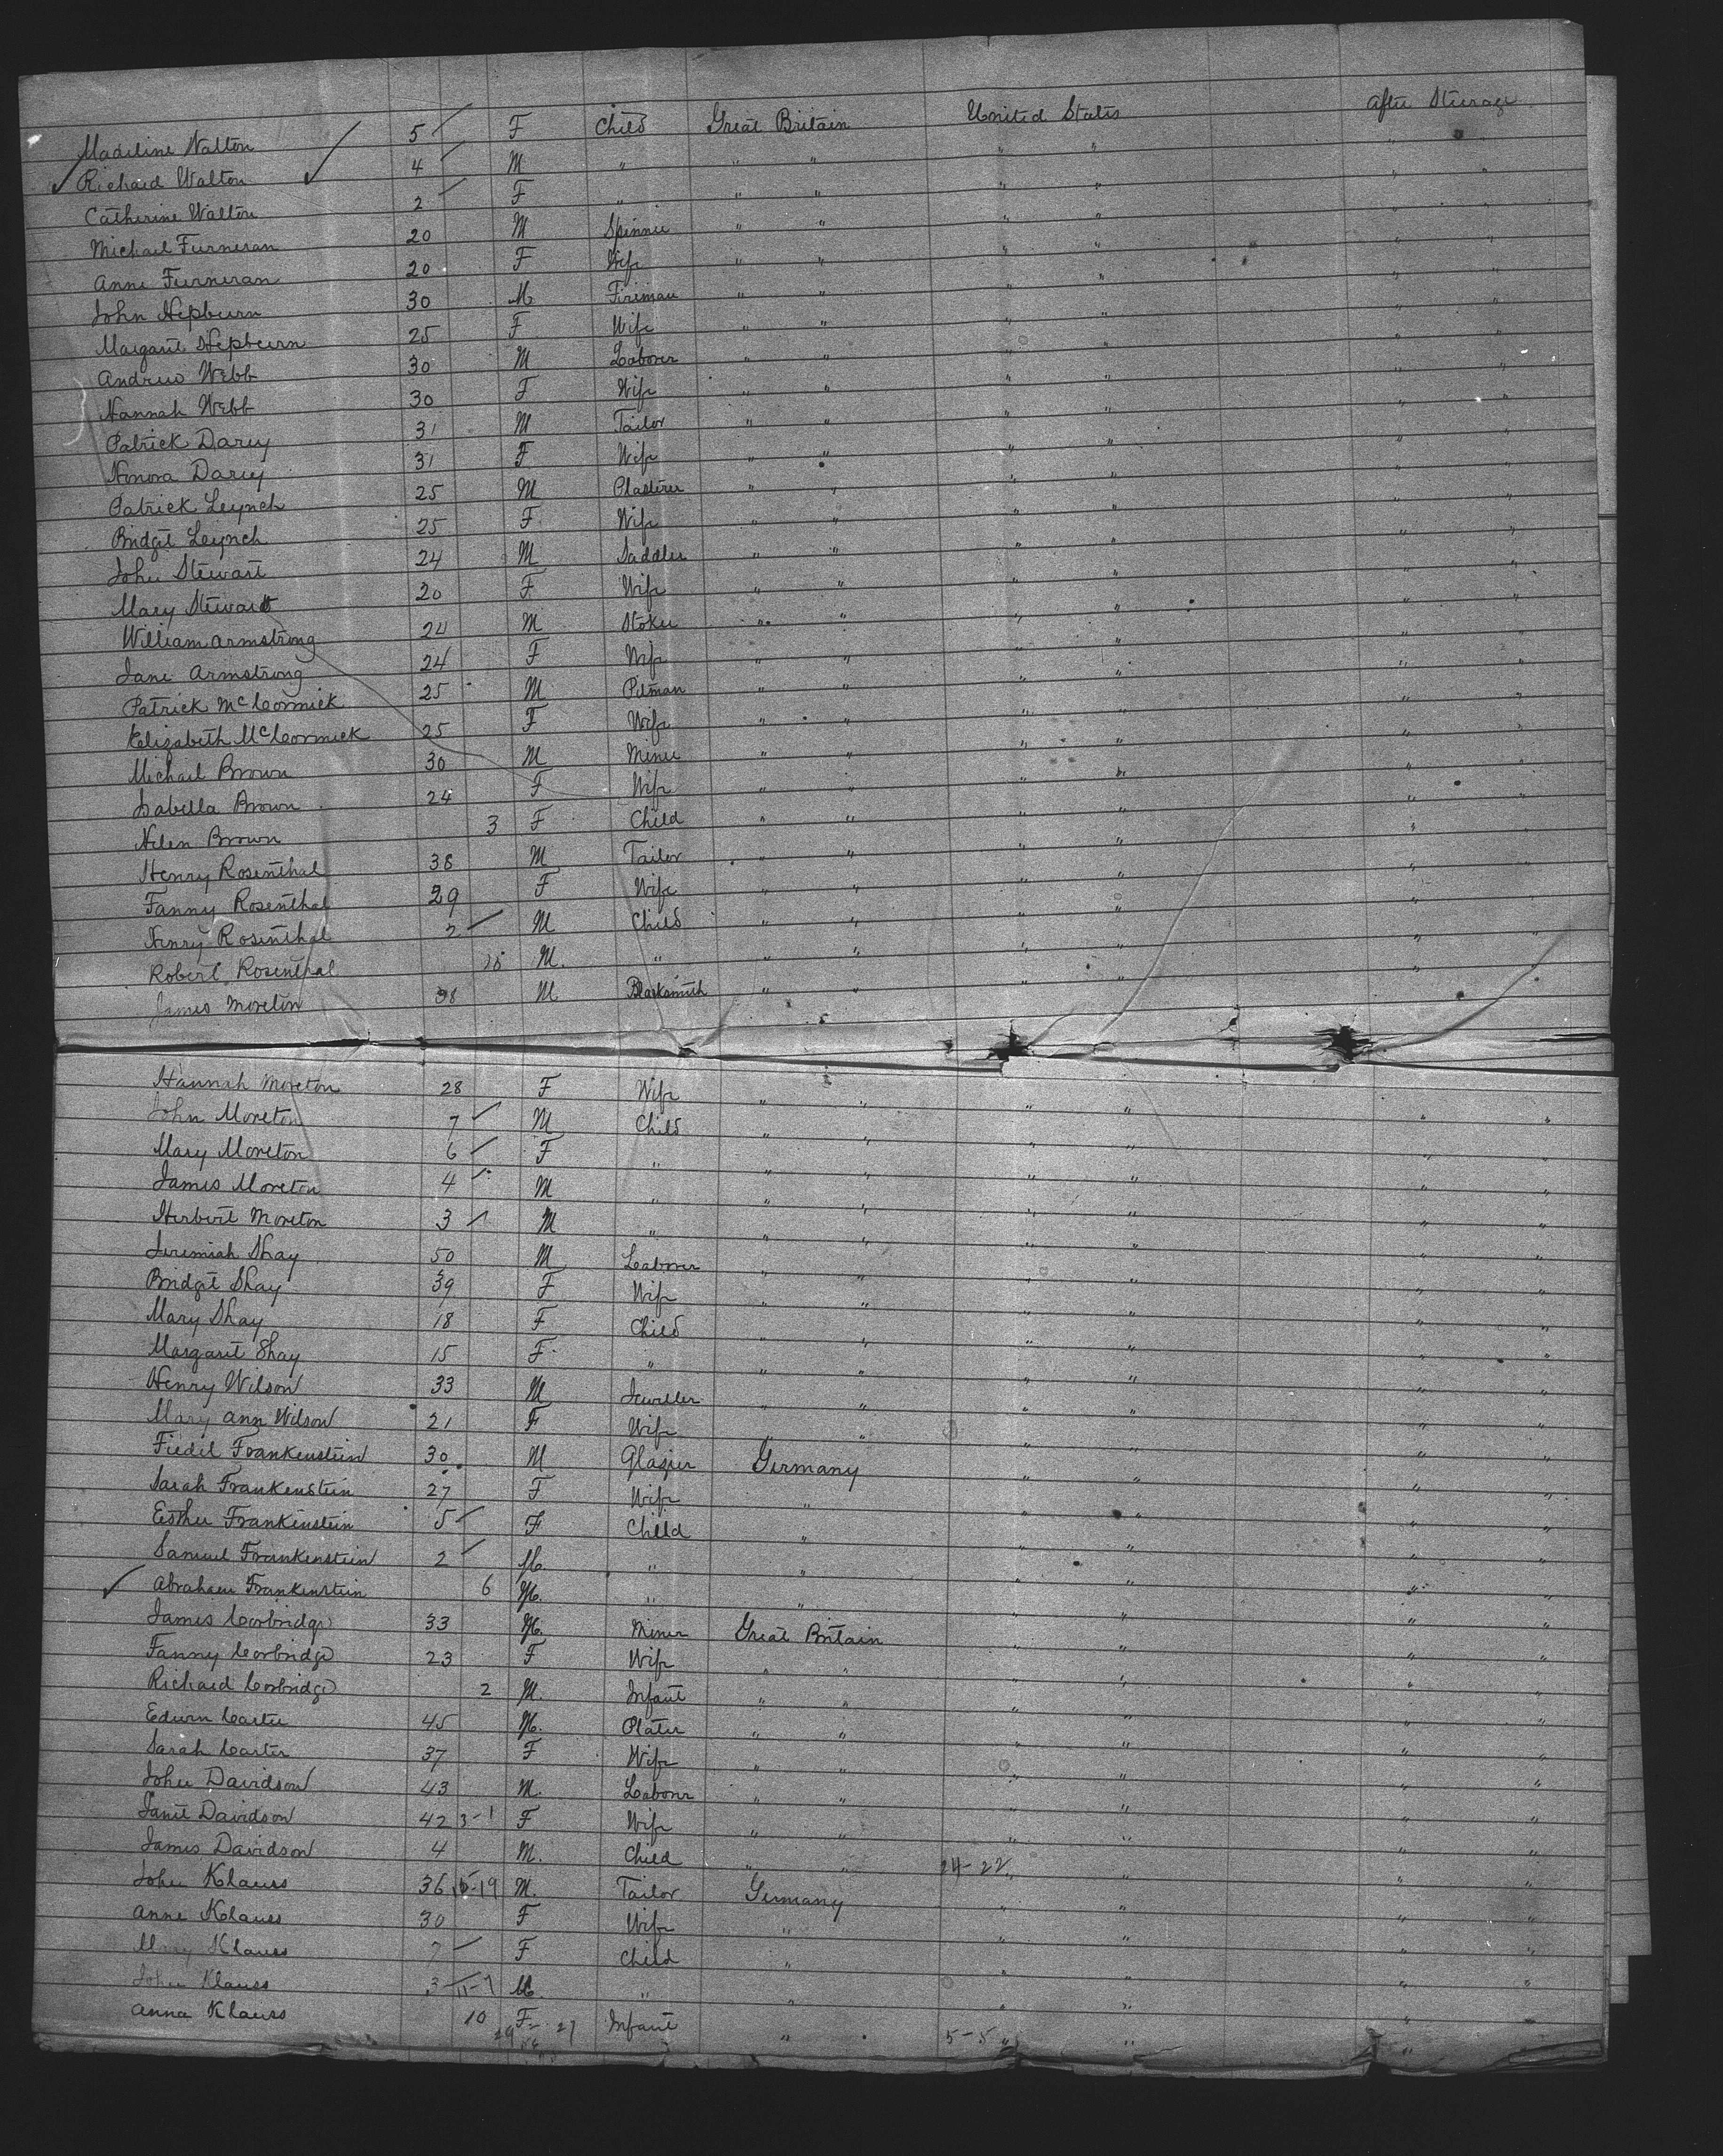 Madeline Walton 5 F Child Great Britain United States After Steerage
Richard Walton 4 M " " " " " " "
Catherine Walton 2 F " " " " " " "
Michael Furneran 20 M Spinner " " " " " "
Anne Furneran 20 F Wife " " " " " "
John Hepburn 30 M Fireman " " " " " "
Margaret Hepburn 25 F Wife " " " " " "
Andrew Webb 30 M Laborer " " " " " "
Hannah Webb 30 F Wife " " " " " "
Patrick Darcy 31 M Tailor " " " " " "
Honora Darcy 31 F Wife " " " " " "
Patrick Leynch 25 M Plasterer " " " " " "
Bridget Leynch 25 F Wife " " " " " "
John Stewart 24 M Saddler " " " " " "
Mary Stewart 20 F Wife " " " " " "
William Armstrong 24 M Stoker " " " " " "
Jane Armstrong 24 F Wife " " " " " "
Patrick McCormick 25 M Pitman " " " " " "
Elizabeth McCormick 25 F Wife " " " " " "
Michael Brown 30 M Miner " " " " " "
Isabella Brown 24 F Wife " " " " " "
Helen Brown 3 F Child " " " " " "
Henry Rosenthal 38 M Tailor " " " " " "
Fanny Rosenthal 29 F Wife " " " " " "
Henry Rosenthal 2 M Child " " " " " "
Robert Rosenthal M. " " " " " " "
James Moreton 38 M Blacksmith " "
Hannah Moreton 28 F Wife " " " " " "
John Moreton 7 M Child " " " " " "
Mary Moreton 6 F " " " " " " "
James Moreton 4 M " " " " " " "
Herbert Moreton 3 M " " " " " " "
Jeremiah Shay 50 M Laborer " " " " " "
Bridget Shay 39 F Wife " " " " " "
Mary Shay 18 F Child " " " " " "
Margaret Shay 15 F " " " " " " "
Henry Wilson 33 M Jeweller " " " " " "
Mary Ann Wilson 21 F Wife " " " " " "
Fiedel Frankenstein 30 M Glazier Germany " " " "
Sarah Frankenstein 27 F Wife " " " " "
Esther Frankenstein 5 F Child " " " " "
Samuel Frankenstein 2 M. " " " " " "
Abraham Frankenstein 6 M. " " " " " "
James Corbridge 33 M. Miner Great Britain " " " "
Fanny Corbridge 23 F Wife " " " " " "
Richard Corbridge 2 M. Infant " " " " " "
Edwin Carter 45 M. Plater " " " " " "
Sarah Carter 37 F Wife " " " " " "
John Davidson 43 M. Laborer " " " " " "
Janet Davidson 42 3-1 F Wife " " " " " "
James Davidson 4 M. Child " " 24-22 " " " "
John Klauss 36 M. Tailor Germany " " " "
Anne Klauss 30 F Wife " " " " "
Mary Klauss 7 F Child " " " " "
John Klauss 3 11-7 M. " " " " " "
Anna Klauss 10 F Infant " 5-5 " " "
29 27